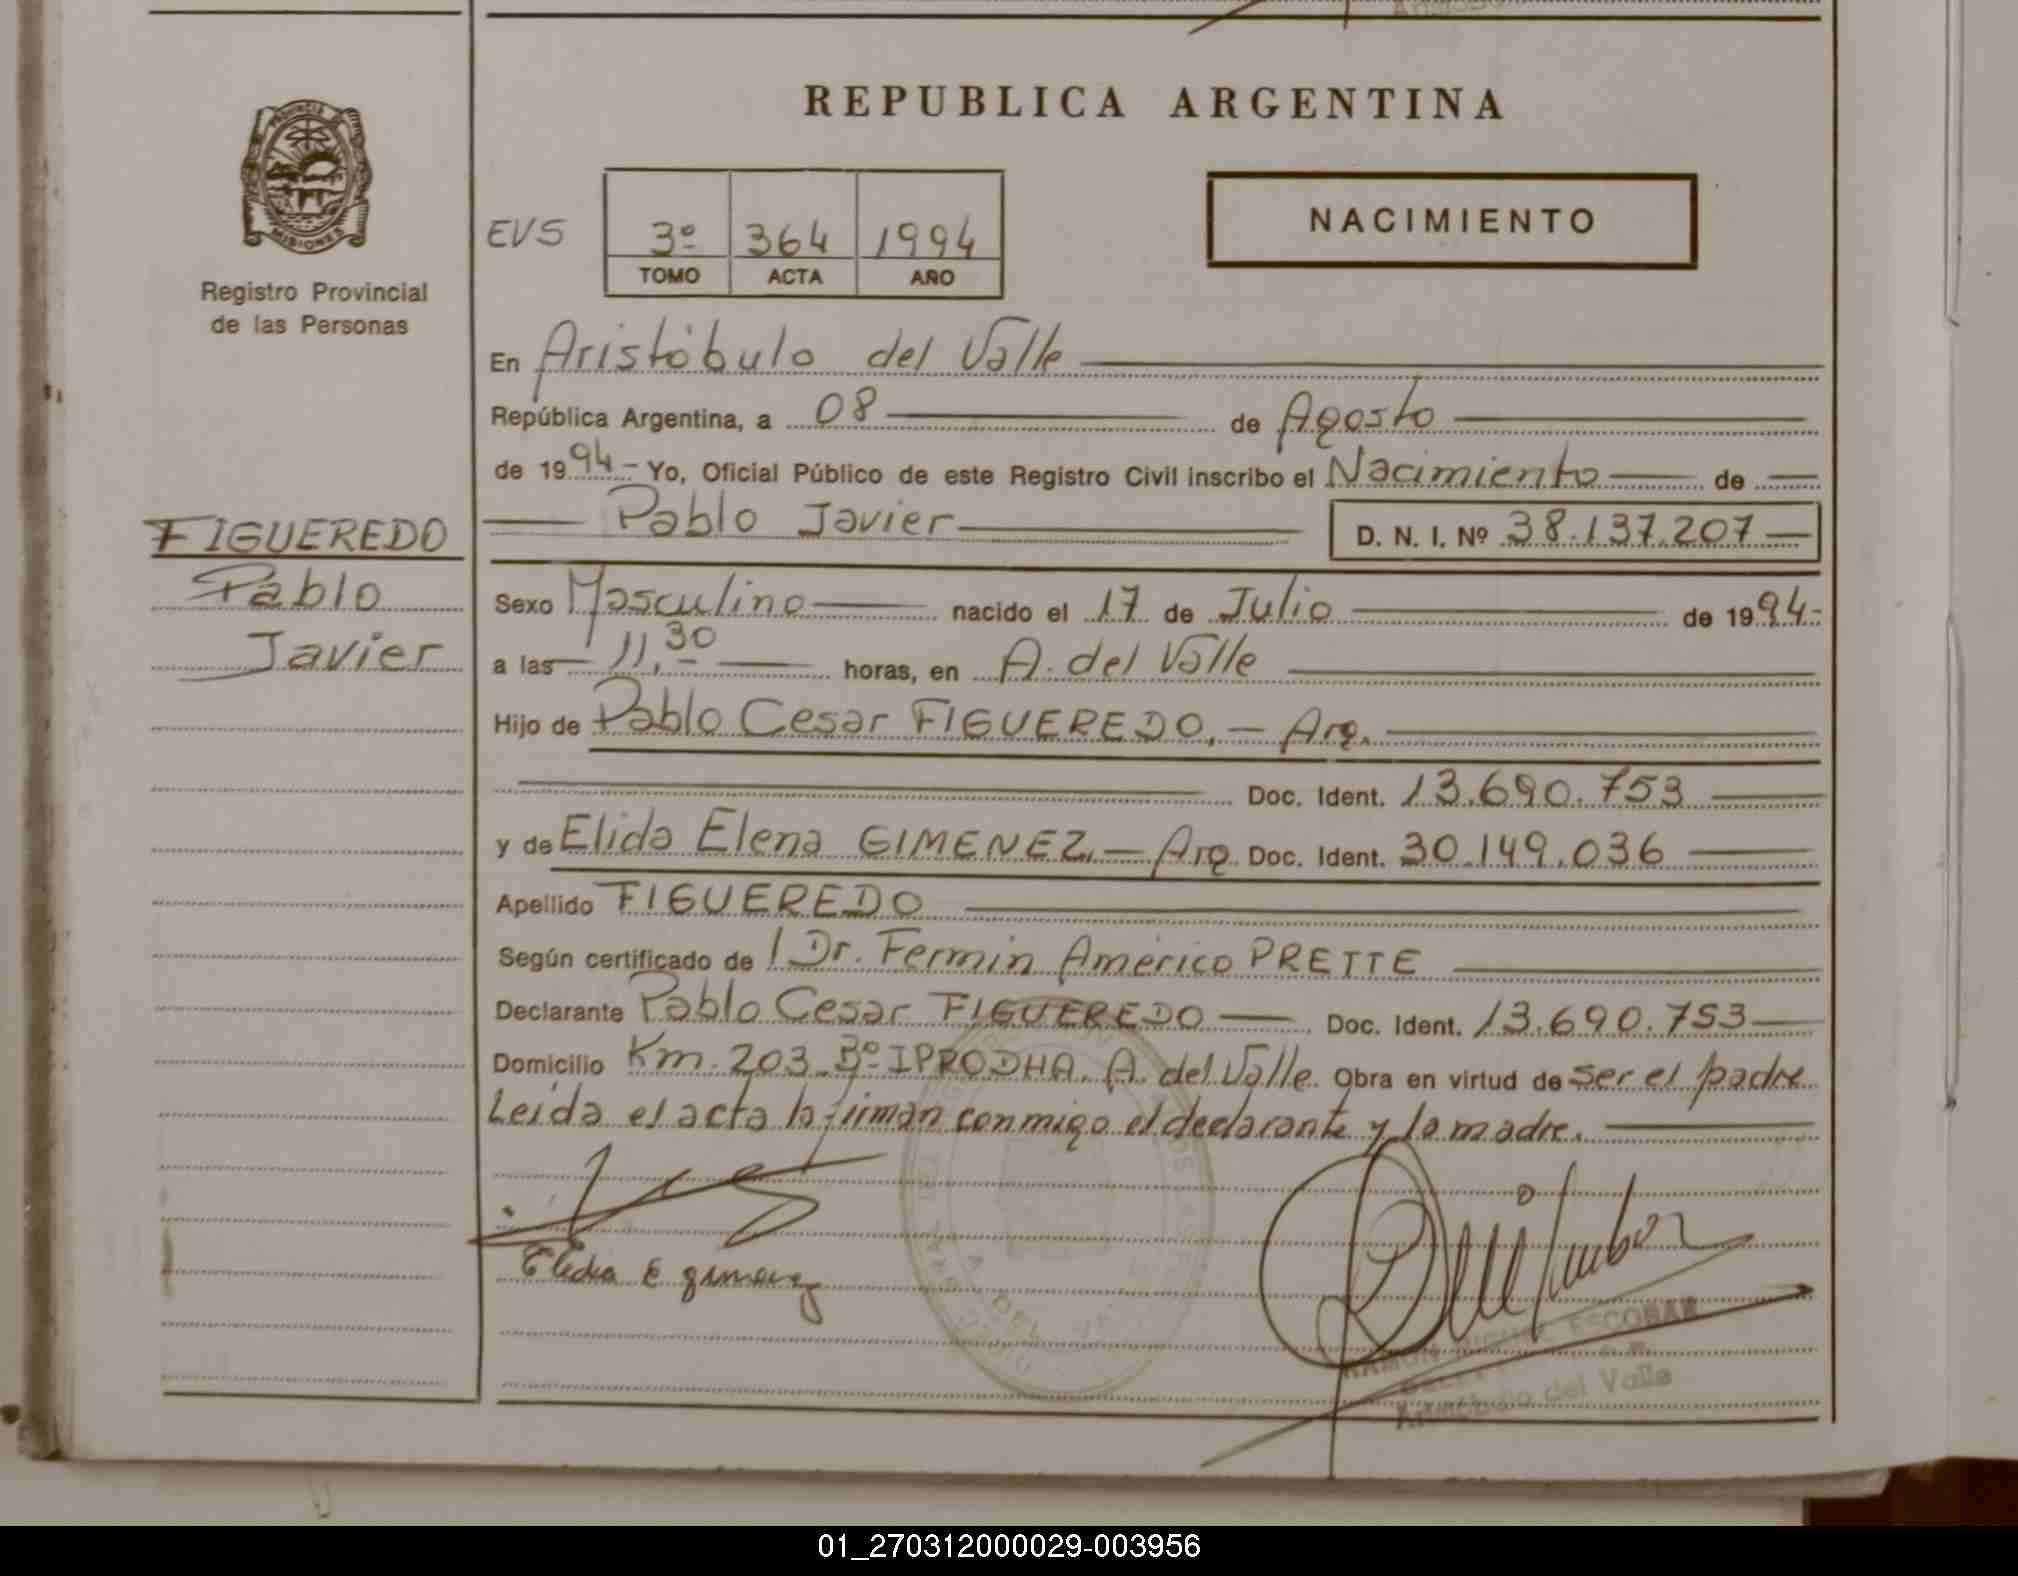 REPUBLICA ARGENTINA
PROVINCIA
MISIONES
Registro Provincial
de las Personas
EVS
3º 364 1994
TOMO ACTA AÑO
NACIMIENTO
En Aristóbulo del Valle
República Argentina, a 08 de Agosto
de 1994 - Yo, Oficial Público de este Registro Civil inscribo el Nacimiento de
Pablo Javier D. N. I. Nº 38.137.207
FIGUEREDO
Pablo
Javier
Sexo Masculino nacido el 17 de Julio de 1994-
a las 11,30 horas, en A. del Valle
Hijo de Pablo Cesar FIGUEREDO, - Arg.
Doc. Ident. 13.690.753
y de Elida Elena GIMENEZ, - Arg. Doc. Ident. 30.149.036
Apellido FIGUEREDO
Según certificado de l Dr. Fermin Américo PRETTE
Declarante Pablo Cesar FIGUEREDO Doc. Ident. 13.690.753
Domicilio Km. 203. Bº IPRODHA. A. del Valle. Obra en virtud de ser el padre
Leída el acta la firman conmigo el declarante y la madre.
Elida E gimenez
RAMON MIGUEL ESCOBAR
Aristóbulo del Valle
01_270312000029-003956